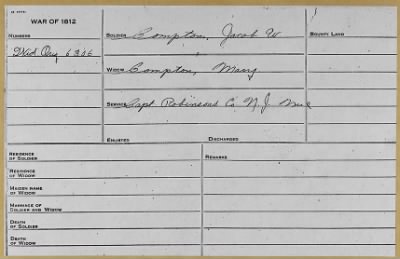 WAR OF 1812
NUMBERS
Wid. Orig 6306
SOLDIER Compton, Jacob W
WIDOW Compton, Mary
SERVICE Capt Robinsons Co. N.J. Mil
ENLISTED DISCHARGED
BOUNTY LAND
RESIDENCE OF SOLDIER
RESIDENCE OF WIDOW
MAIDEN NAME OF WIDOW
MARRIAGE OF SOLDIER AND WIDOW
DEATH OF SOLDIER
DEATH OF WIDOW
REMARKS